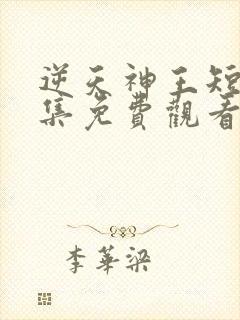 逆天神王短
集免費觀看
李華梁